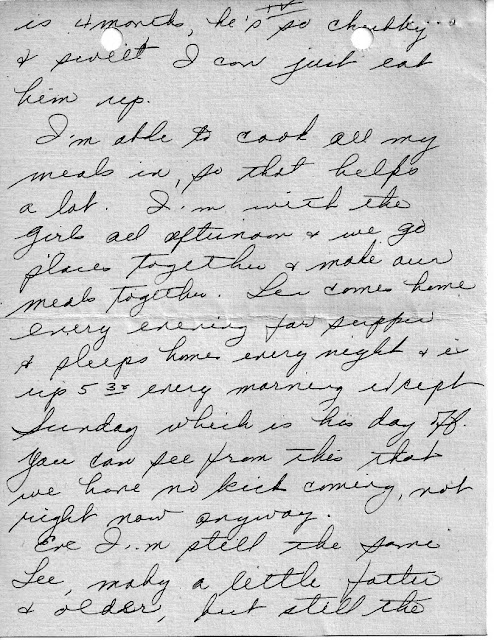 is 4 months, he's so chubby
& sweet I can just eat
him up.
I'm able to cook all my
meals in, so that helps
a lot. I'm with the
girls all afternoon & we go
places together & make our
meals together. Len comes home
every evening for supper
& sleeps home every night & is
up 5 30 every morning except
Sunday which is his day off.
You can see from this that
we have no kick coming, not
right now anyway.
Eve I'm still the same
Lee, maby a little fatter
& older, but still the